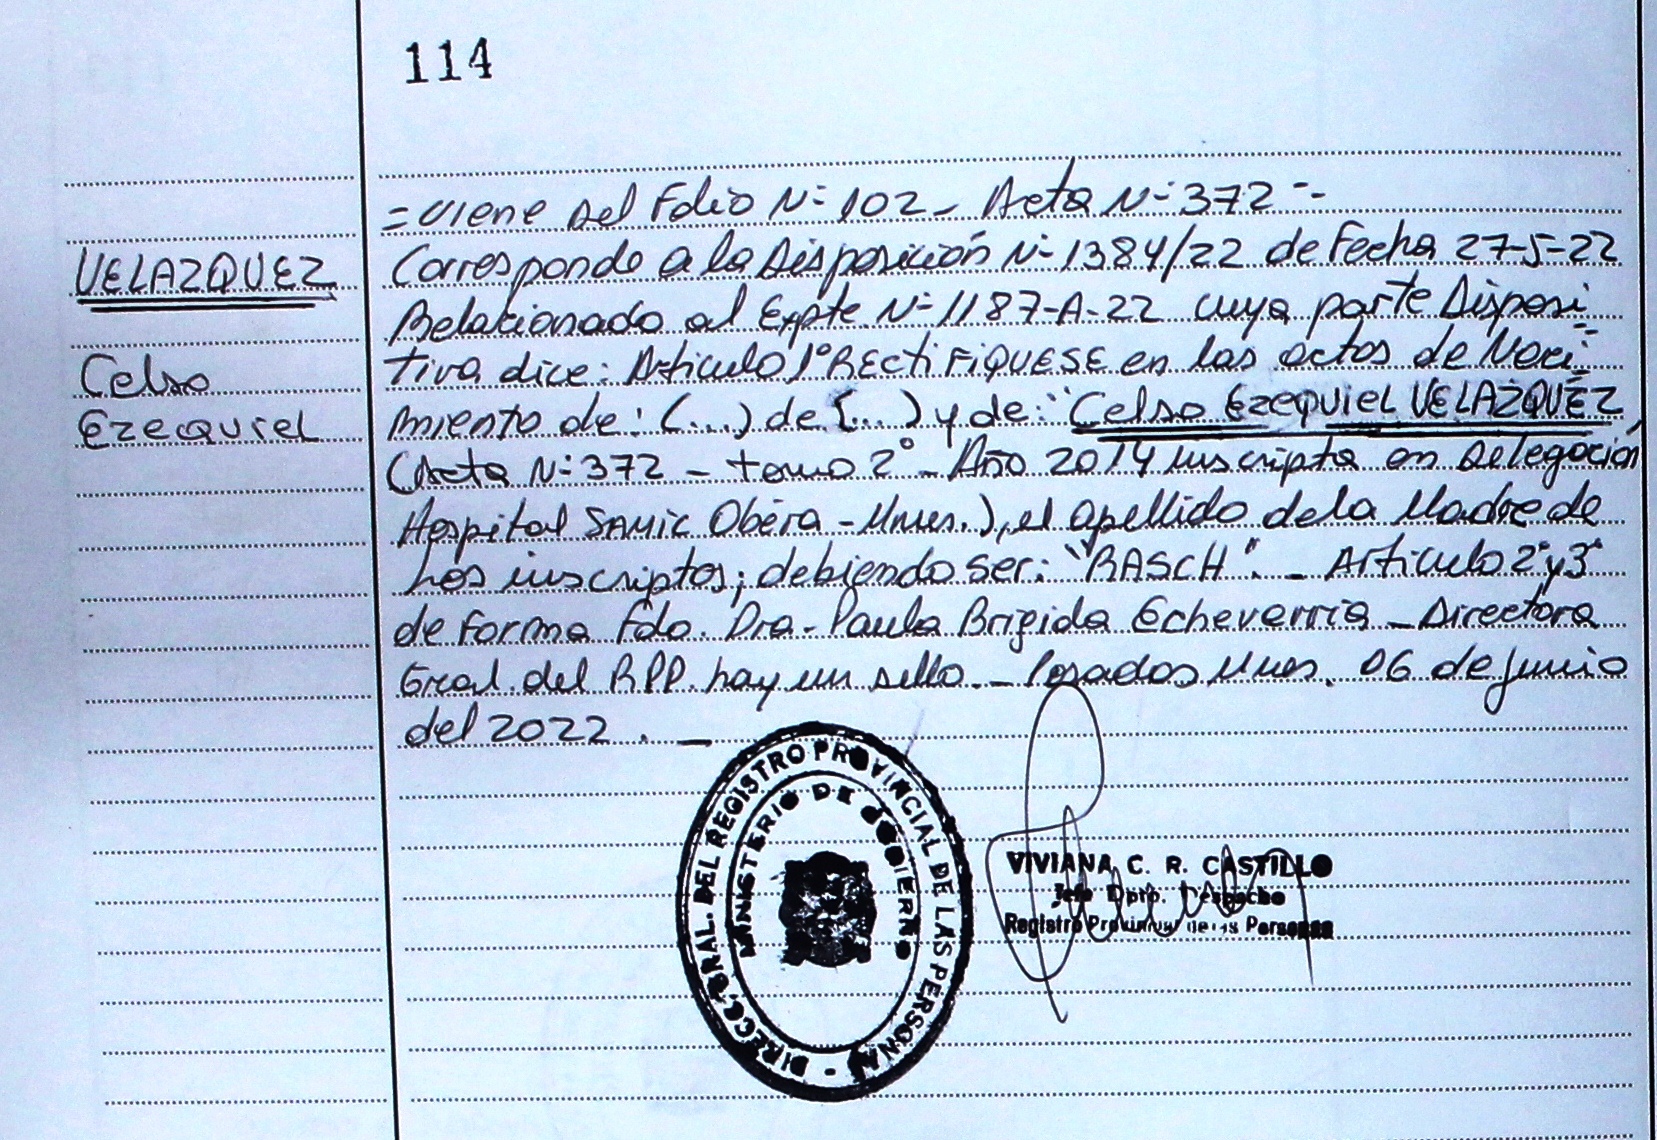 114
=Viene del Folio N-º 102_ Acta N-º 372 -.
VELAZQUEZ
Celso
Ezequiel
Corresponde a la Disposición N-º 1384/22 de Fecha 27-5-22
Relacionado al Expte. N-º 1187-A-22 cuya parte Disposi
tiva dice: Articulo 1º RECTIFIQUESE en las actas de Naci
miento de: (...) de (...) y de: "Celso Ezequiel VELAZQUEZ,
(Acta N-º 372 - tomo 2º - Año 2014 inscripta en Delegación
Hospital SAMIC Oberá - Mnes.), el apellido de la Madre de
los inscriptos; debiendo ser: "RASCH". _ Articulo 2º y 3º
de forma Fdo. Dra. Paula Brigida Echeverria _ Directora
Gral. del RPP. hay un sello. _ Posadas Mnes. 06 de Junio
del 2022. _
DIRECC. GRAL. DEL REGISTRO PROVINCIAL DE LAS PERSONAS -
MINISTERIO DE GOBIERNO
VIVIANA C. R. CASTILLO
Jefe Dpto. Despacho
Registro Provincial de las Personas